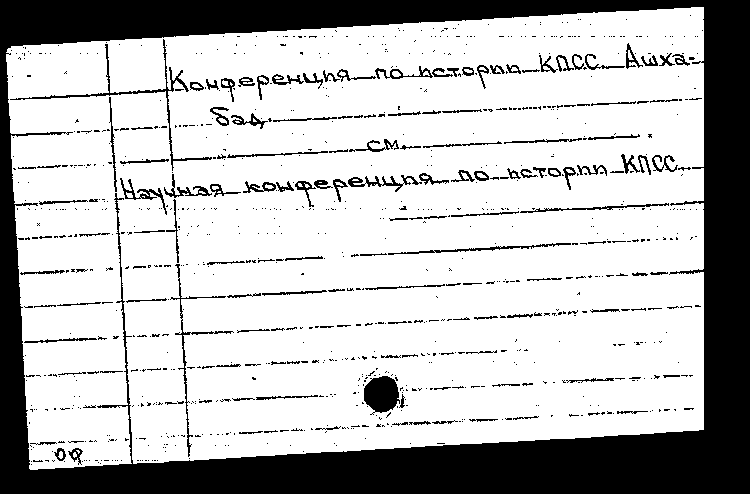 Конференция по истории КПСС. Ашха-
бад.
см.
Научная конференция по истории КПСС...
оф